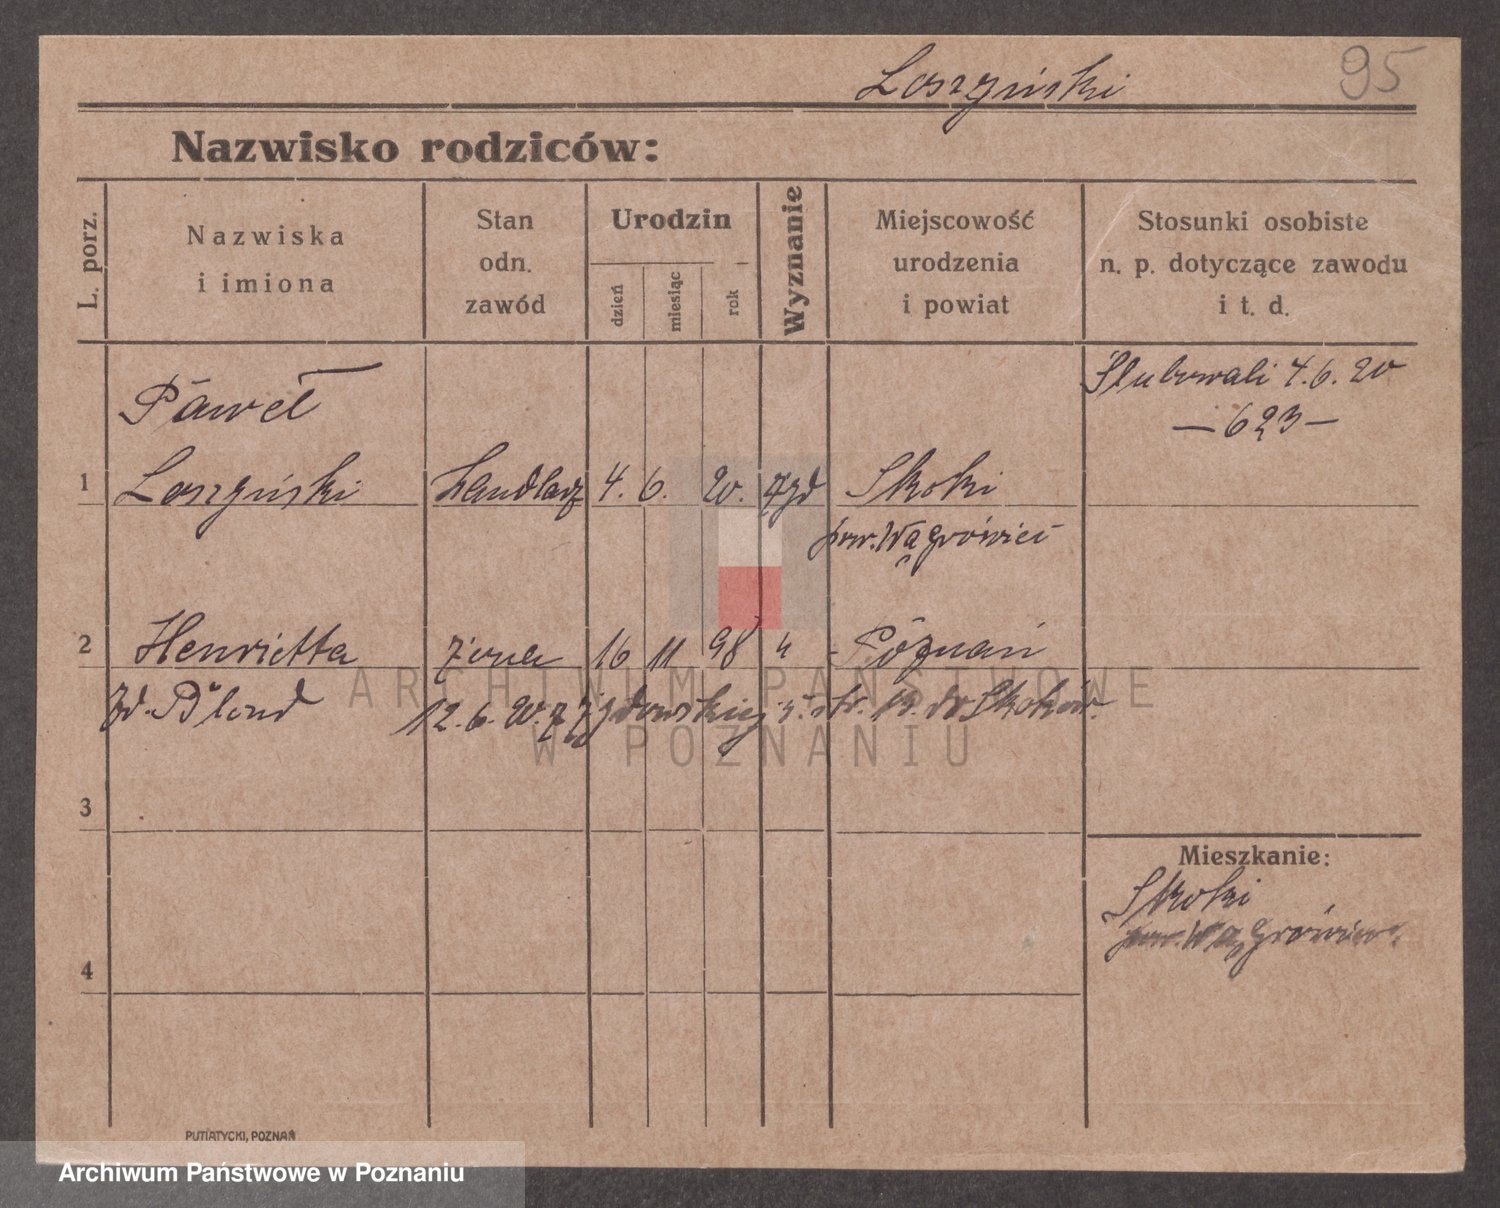 Loszyński
95
Nazwisko rodziców:
L. porz.
Nazwiska
i imiona
Stan
odn.
zawód
Urodzin
dzień
miesiąc
rok
Wyznanie
Miejscowość
urodzenia
i powiat
Stosunki osobiste
n. p. dotyczące zawodu
i t. d.
Paweł
Ślubowali 4.6.20
— 623 —
1 Loszyński handlarz 4. 6. 20. żyd Skoki
pow. Wągrówiec
2 Henrietta żona 16 11 98 " Poznań
żd. Blond 12.6.20. z Żydowskiej str. 19. do Skoków.
3
Mieszkanie:
Skoki
pow. Wągrówiec.
4
PUTIATYCKI, POZNAŃ
ARCHIWUM PAŃSTWOWE
W POZNANIU
Archiwum Państwowe w Poznaniu